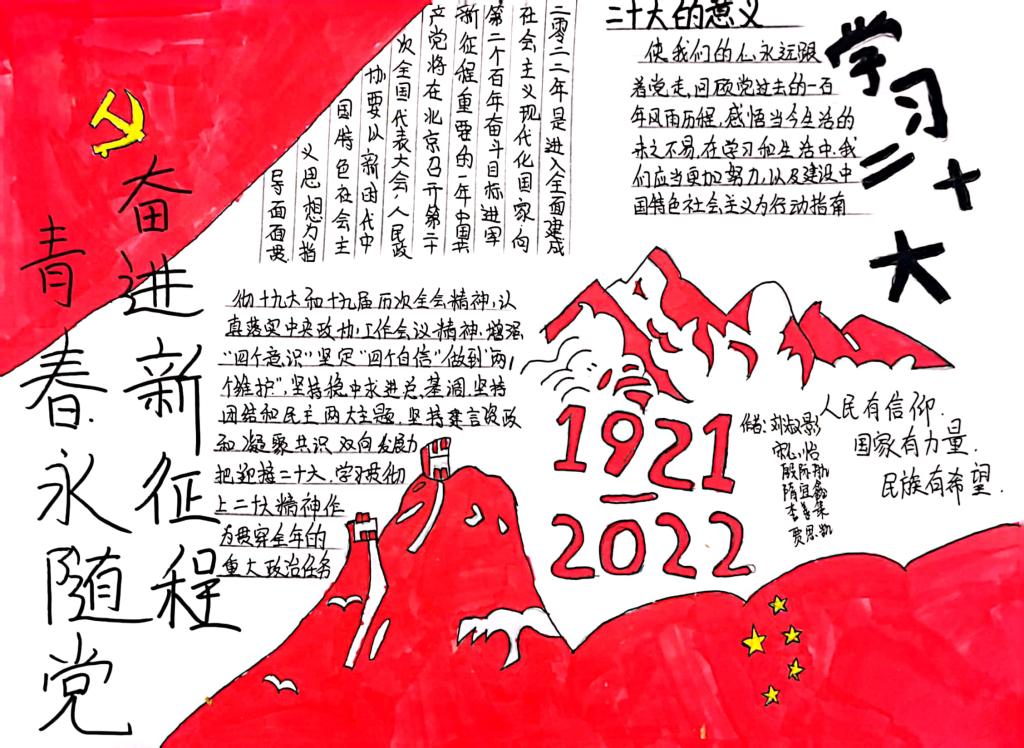 奋进新征程
青春永随党
二零二二年是进入全面建成
社会主义现代化国家,向
第二个百年奋斗目标进军
新征程重要的一年中国共
产党将在北京召开第二十
次全国代表大会,人民政
协要以新时代中
国特色社会主
义思想为指
导面面贯
彻十九大和十九届历次全会精神,认
真落实中央政协工作会议精神.增强
"四个意识"坚定"四个自信"做到"两
个维护",坚持稳中求进总.基调.坚持
团结和民主两大主题.坚持建言资政
和凝聚共识双向发展力
把迎接二十大,学习贯彻
上二十大精神作
为贯穿全年的
重大政治任务
二十大的意义
使我们的心永远跟
着党走,回顾党过去的一百
年风雨历程,感悟当今生活的
来之不易,在学习和生活中.我
们应当更加努力,以及建设中
国特色社会主义为行动指南
学习二十大
1921
—
2022
作者:刘淑影
贾思凯
人民有信仰.
国家有力量.
民族有希望.